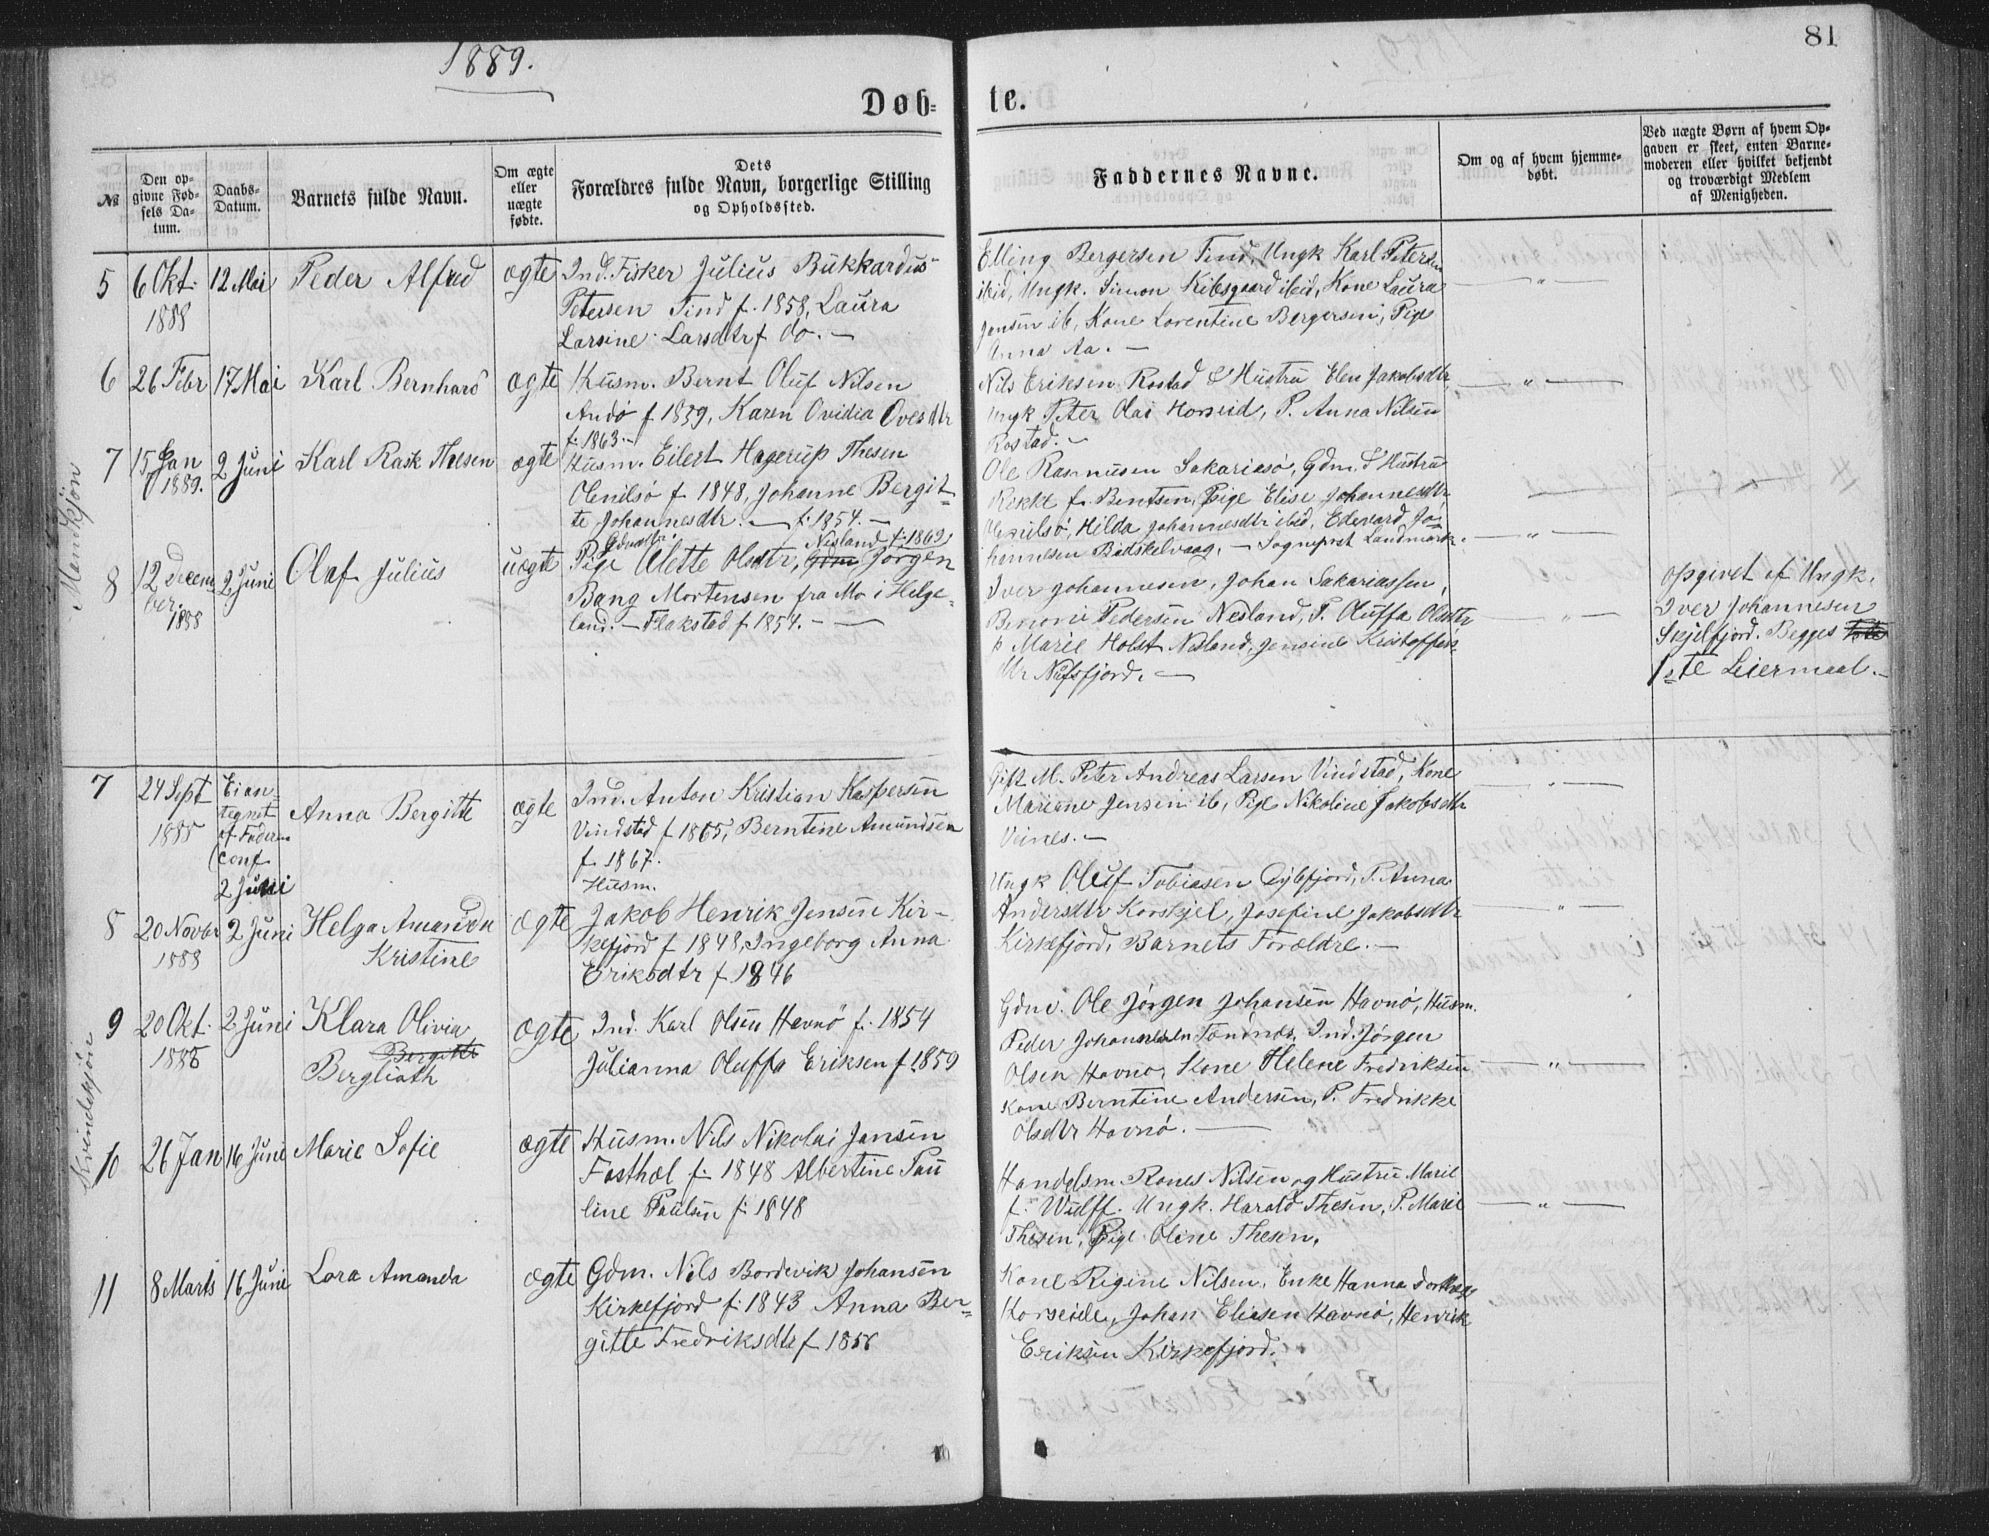 1889.
81
Døb-
te.
№
Den op-
givne Fød-
sels Da-
tum.
Daabs-
Datum.
Barnets fulde Navn.
Om ægte
eller
uægte
fødte.
Dets
Forældres fulde Navn, borgerlige Stilling
og Opholdssted.
Faddernes Navne.
Om og af hvem hjemme-
døbt.
Ved uægte Børn af hvem Op-
gaven er skeet, enten Barne-
moderen eller hvilket bekjendt
og troværdigt Medlem
af Menigheden.
Mandkjøn
5
6 Okt.
1888
12 Mai
Peder Alfred
ægte
Ind. Fisker Julius Bukkardus
Petersen Tind f. 1858, Laura
Larsine Larsdtr f do. —
Elling Bergersen Tind, Ungk Karl Petersen
ibid, Ungk. Simon Kibsgaard ibid, Kone Laura
Jensen ib, Kone Lorentine Bergersen, Pige
Anna Aa. —
— " —
6
26 Febr
17 Mai
Karl Bernhard
ægte
Husm. Bernt Oluf Nilsen
Andø f 1839, Karen Ovidia Ovesdtr
f. 1863. —
Nils Eriksen Rostad & Hustru Elen Jakobsdtr,
Ungk Peter Olai Horseid, P. Anna Nilsen
Rostad. —
— " —
7
15 Jan
1889.
2 Juni
Karl Rask Thesen
ægte
Husm. Eilert Hagerup Thesen
Olenilsø f 1848, Johanne Bergit-
te Johannesdtr. — f. 1854. —
Ole Rasmusen Sakariasø, Gdm. & Hustru
Rikke f. Bentsen, Pige Elise Johannesdtr,
Olenilsø, Hilda Johannesdtr ibid, Edevard Jo-
hannesen Badskelvaag. — Sogneprst Landmark.
— " —
8
12 Decem
ber.
1888
2 Juni
Olaf Julius
uægte
Gdmdtr. Nesland f. 1869,
Pige Alette Olsdtr, Gdm Jørgen
Bang Mortensen fra Mo i Helge-
land. — Flakstad f 1854. — —
Iver Johannesen, Johan Sakariassen,
Benoni Pedersen Nesland, P. Oluffa Olsdtr
P Marie Holst Nesland, Jensine Kristoffers
dtr Nufsfjord. —
— " —
Opgivet af Ungk.
Iver Johannesen
Skjelfjord. Begges
1ste Leiermaal. —
Kvindekjøn
7
24 Sept
1885
Ei an-
tegnet
af Foderen
(conf
2 Juni
Anna Bergitte
ægte
Ind. Anton Kristian Kaspersen
Vindstad f 1865, Berntine Amundsen
f. 1867.
Gift M. Peter Andreas Larsen Vindstad, Kone
Mariane Jensen ib, Pige Nikoline Jakobsdtr
Veines. —
— " —
8
20 Novbr
1888
2 Juni
Helga Amanda
Kristine
ægte
Husm.
Jakob Henrik Jensen Kir-
kefjord f 1848, Ingeborg Anna
Eriksdtr f 1846
Ungk Oluf Tobiasen Dybfjord, P. Anna
Andersdtr Korshjel, Josefine Jakobsdtr
Kirkefjord, Barnets Forældre. —
— " —
9
20 Okt.
1888
2 Juni
Klara Olivia
Bergitte
Bergliath
ægte
Ind. Karl Olsen Havnø f. 1854
Julianna Oluffa Eriksen f 1859
Gdm. Ole Jørgen Johansen Havnø, Husm.
Peder Johannesen Tandnes, Ind. Jørgen
Olsen Havnø, Kone Helene Fredriksen
Kone Berntine Andersen, P. Fredrikke
Olsdtr Havnø. —
— " —
10
26 Jan
16 Juni
Marie Sofie
ægte
Husm. Nils Nikolai Jansen
Fosthæl f. 1848 Albertine Pau
line Paulsen f. 1848
Handelsm. Rones Nilsen og Hustru Marie
f. Wulff. Ungk. Harald Thesen, P. Marie
Thesen, Pige Oline Thesen.
— " —
11
8 Marts
16 Juni
Lora Amanda
ægte
Gdm. Nils Bordevik Johansen
Kirkefjord f. 1843 Anna Ber-
gitte Fredriksdtr f 1856
Kone Regine Nilsen, Enke Hanna
Horseide, Johan Eliasen Havnø, Henrik
Eriksen Kirkefjord.